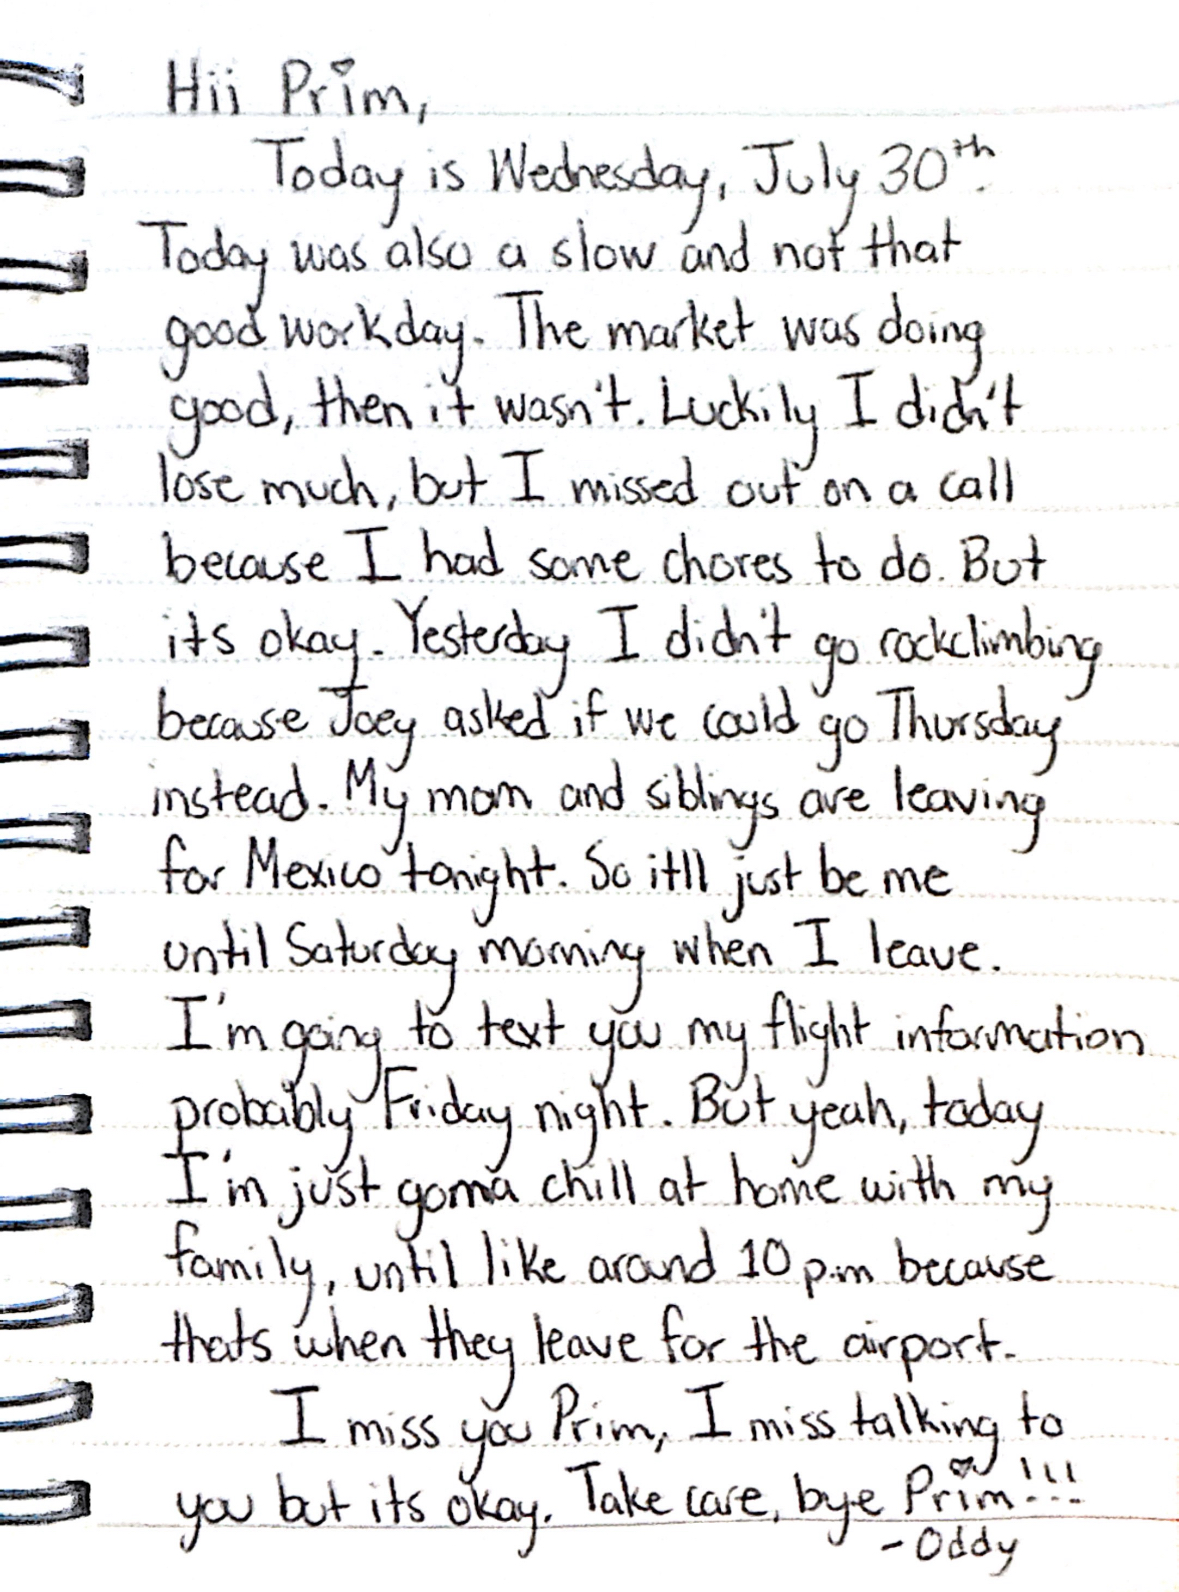 Hii Prim,
Today is Wednesday, July 30th.
Today was also a slow and not that
good workday. The market was doing
good, then it wasn't. Luckily I didn't
lose much, but I missed out on a call
because I had some chores to do. But
its okay. Yesterday I didn't go rockclimbing
because Joey asked if we could go Thursday
instead. My mom and siblings are leaving
for Mexico tonight. So itll just be me
until Saturday morning when I leave.
I'm going to text you my flight information
probably Friday night. But yeah, today
I'm just gonna chill at home with my
family, until like around 10 p.m because
thats when they leave for the airport.
I miss you Prim, I miss talking to
you but its okay. Take care, bye Prim!!!
- Oddy